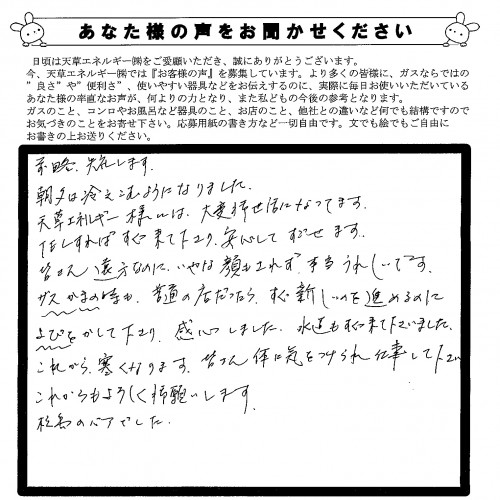 あなた様の声をお聞かせください
日頃は天草エネルギー㈱をご愛顧いただき、誠にありがとうございます。
今、天草エネルギー㈱では『お客様の声』を募集しています。より多くの皆様に、ガスならではの
”良さ”や”便利さ”、使いやすい器具などをお伝えするのに、実際に毎日お使いいただいている
あなた様の率直なお声が、何よりの力となり、また私どもの今後の参考となります。
ガスのこと、コンロやお風呂など器具のこと、お店のこと、他社との違いなど何でも結構ですので
お気づきのことをお寄せ下さい。応募用紙の書き方など一切自由です。文でも絵でもご自由に
お書きの上お送りください。
前略、失礼します。
朝夕は冷えこむようになりました。
天草エネルギー様には、大変お世話になってます。
TELすればすぐ来て下さり、安心してすごせます。
皆さん遠方なのに、いやな顔もされず、本当うれしいです。
ガスかまの時も、普通の店だったら、すぐ新しいのを進めるのに
よびをかして下さり、感心しました。水道もすぐ来て下さいました。
これから、寒くなります。皆さん体に気をつけられ仕事して下さい
これからもよろしくお願いします。
松島のババでした。